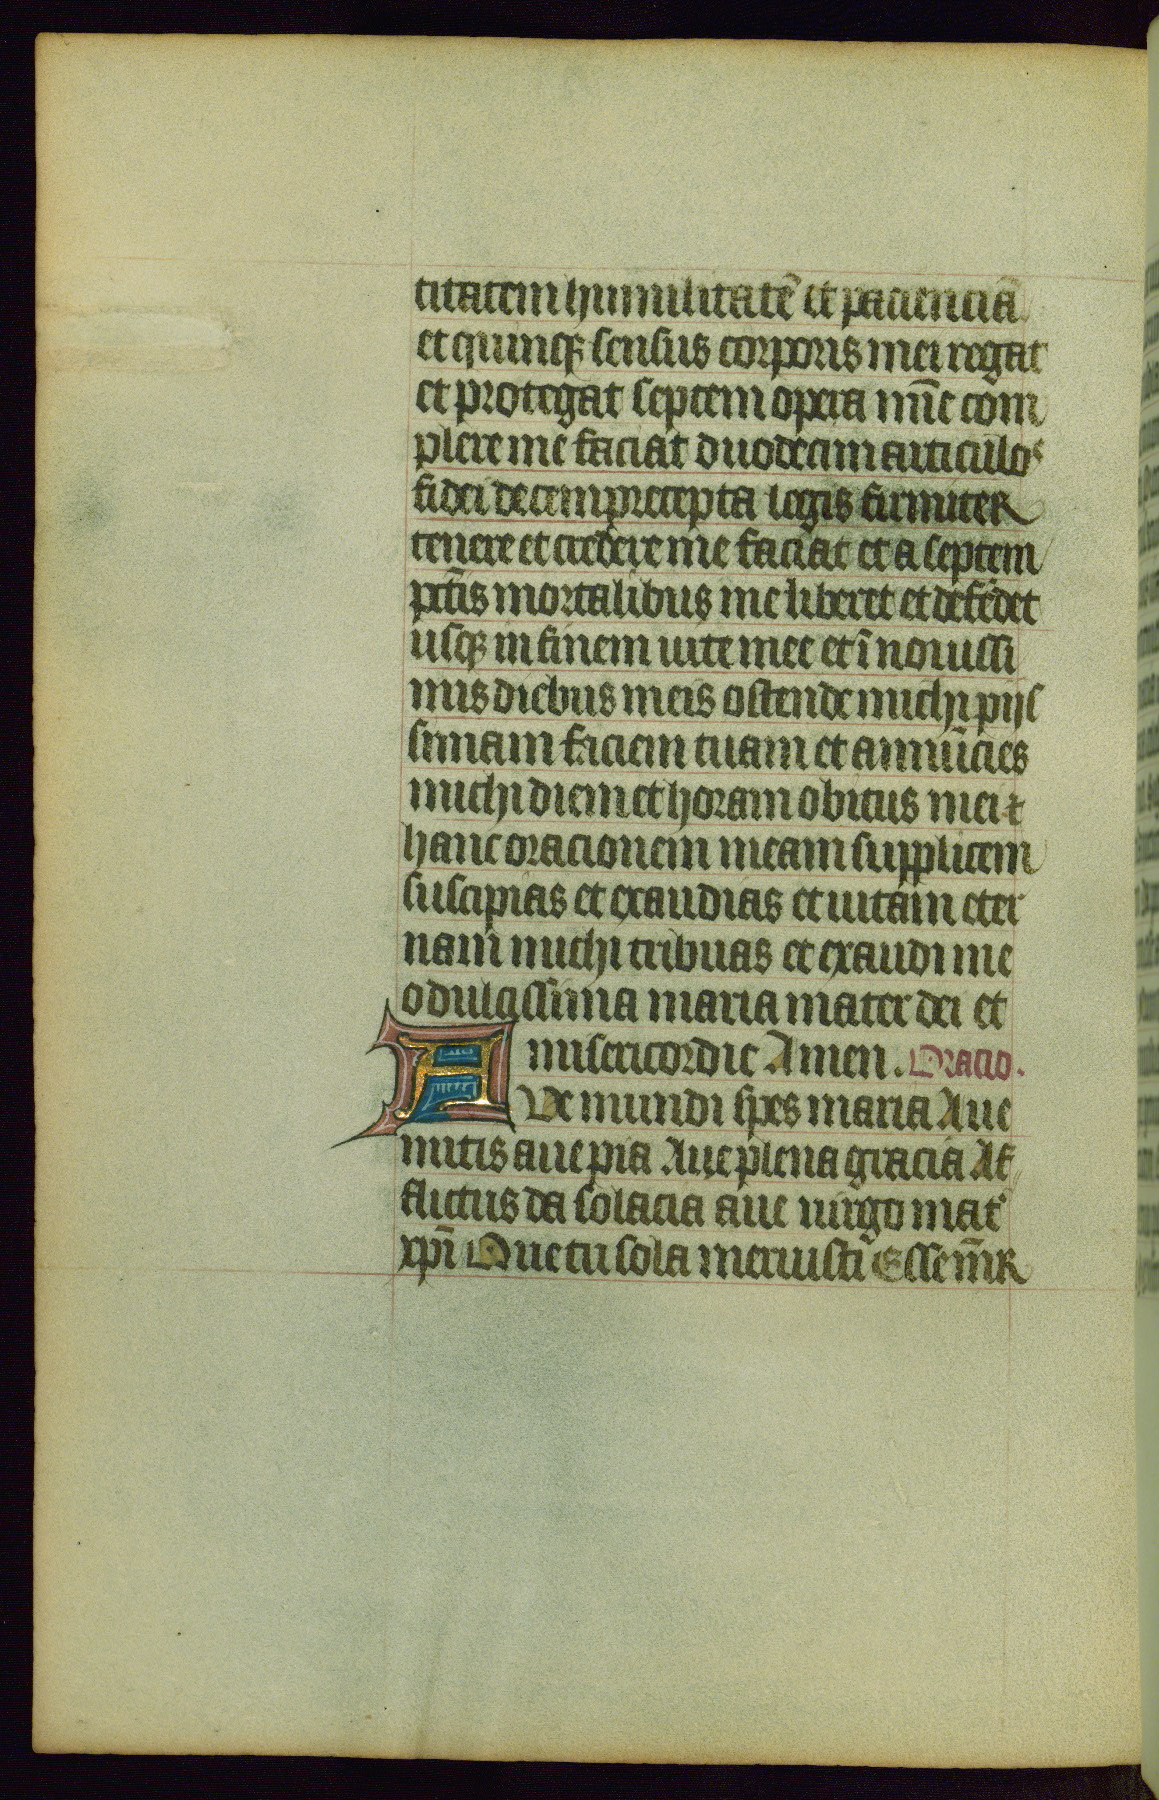 titatem humilitatē et pacienciā
et quinqꝫ sensus corporis mei regat
et protegat septem opera mīe com
plere me faciat duodecim articulos
fidei decem precepta legis firmiter
tenere et credere me faciat et a septem
pctīs mortalibus me liberet et defēdet
usqꝫ in finem uite mee et ī nouissi
mis diebus meis ostende michi pijs
simam faciem tuam et annūcies
michi diem et horam obitus mei ⁊
hanc oracionem meam supplicem
suscipias et exaudias et uitam eter
nam michi tribuas et exaudi me
o dulcissima maria mater dei et
misericordie Amen. Oracio.
AVe mundi spes maria Aue
mitis aue pia Aue plena gracia Af
flictus da solacia aue uirgo mat᷑
xp̄i Que tu sola meruisti Esse mr̄